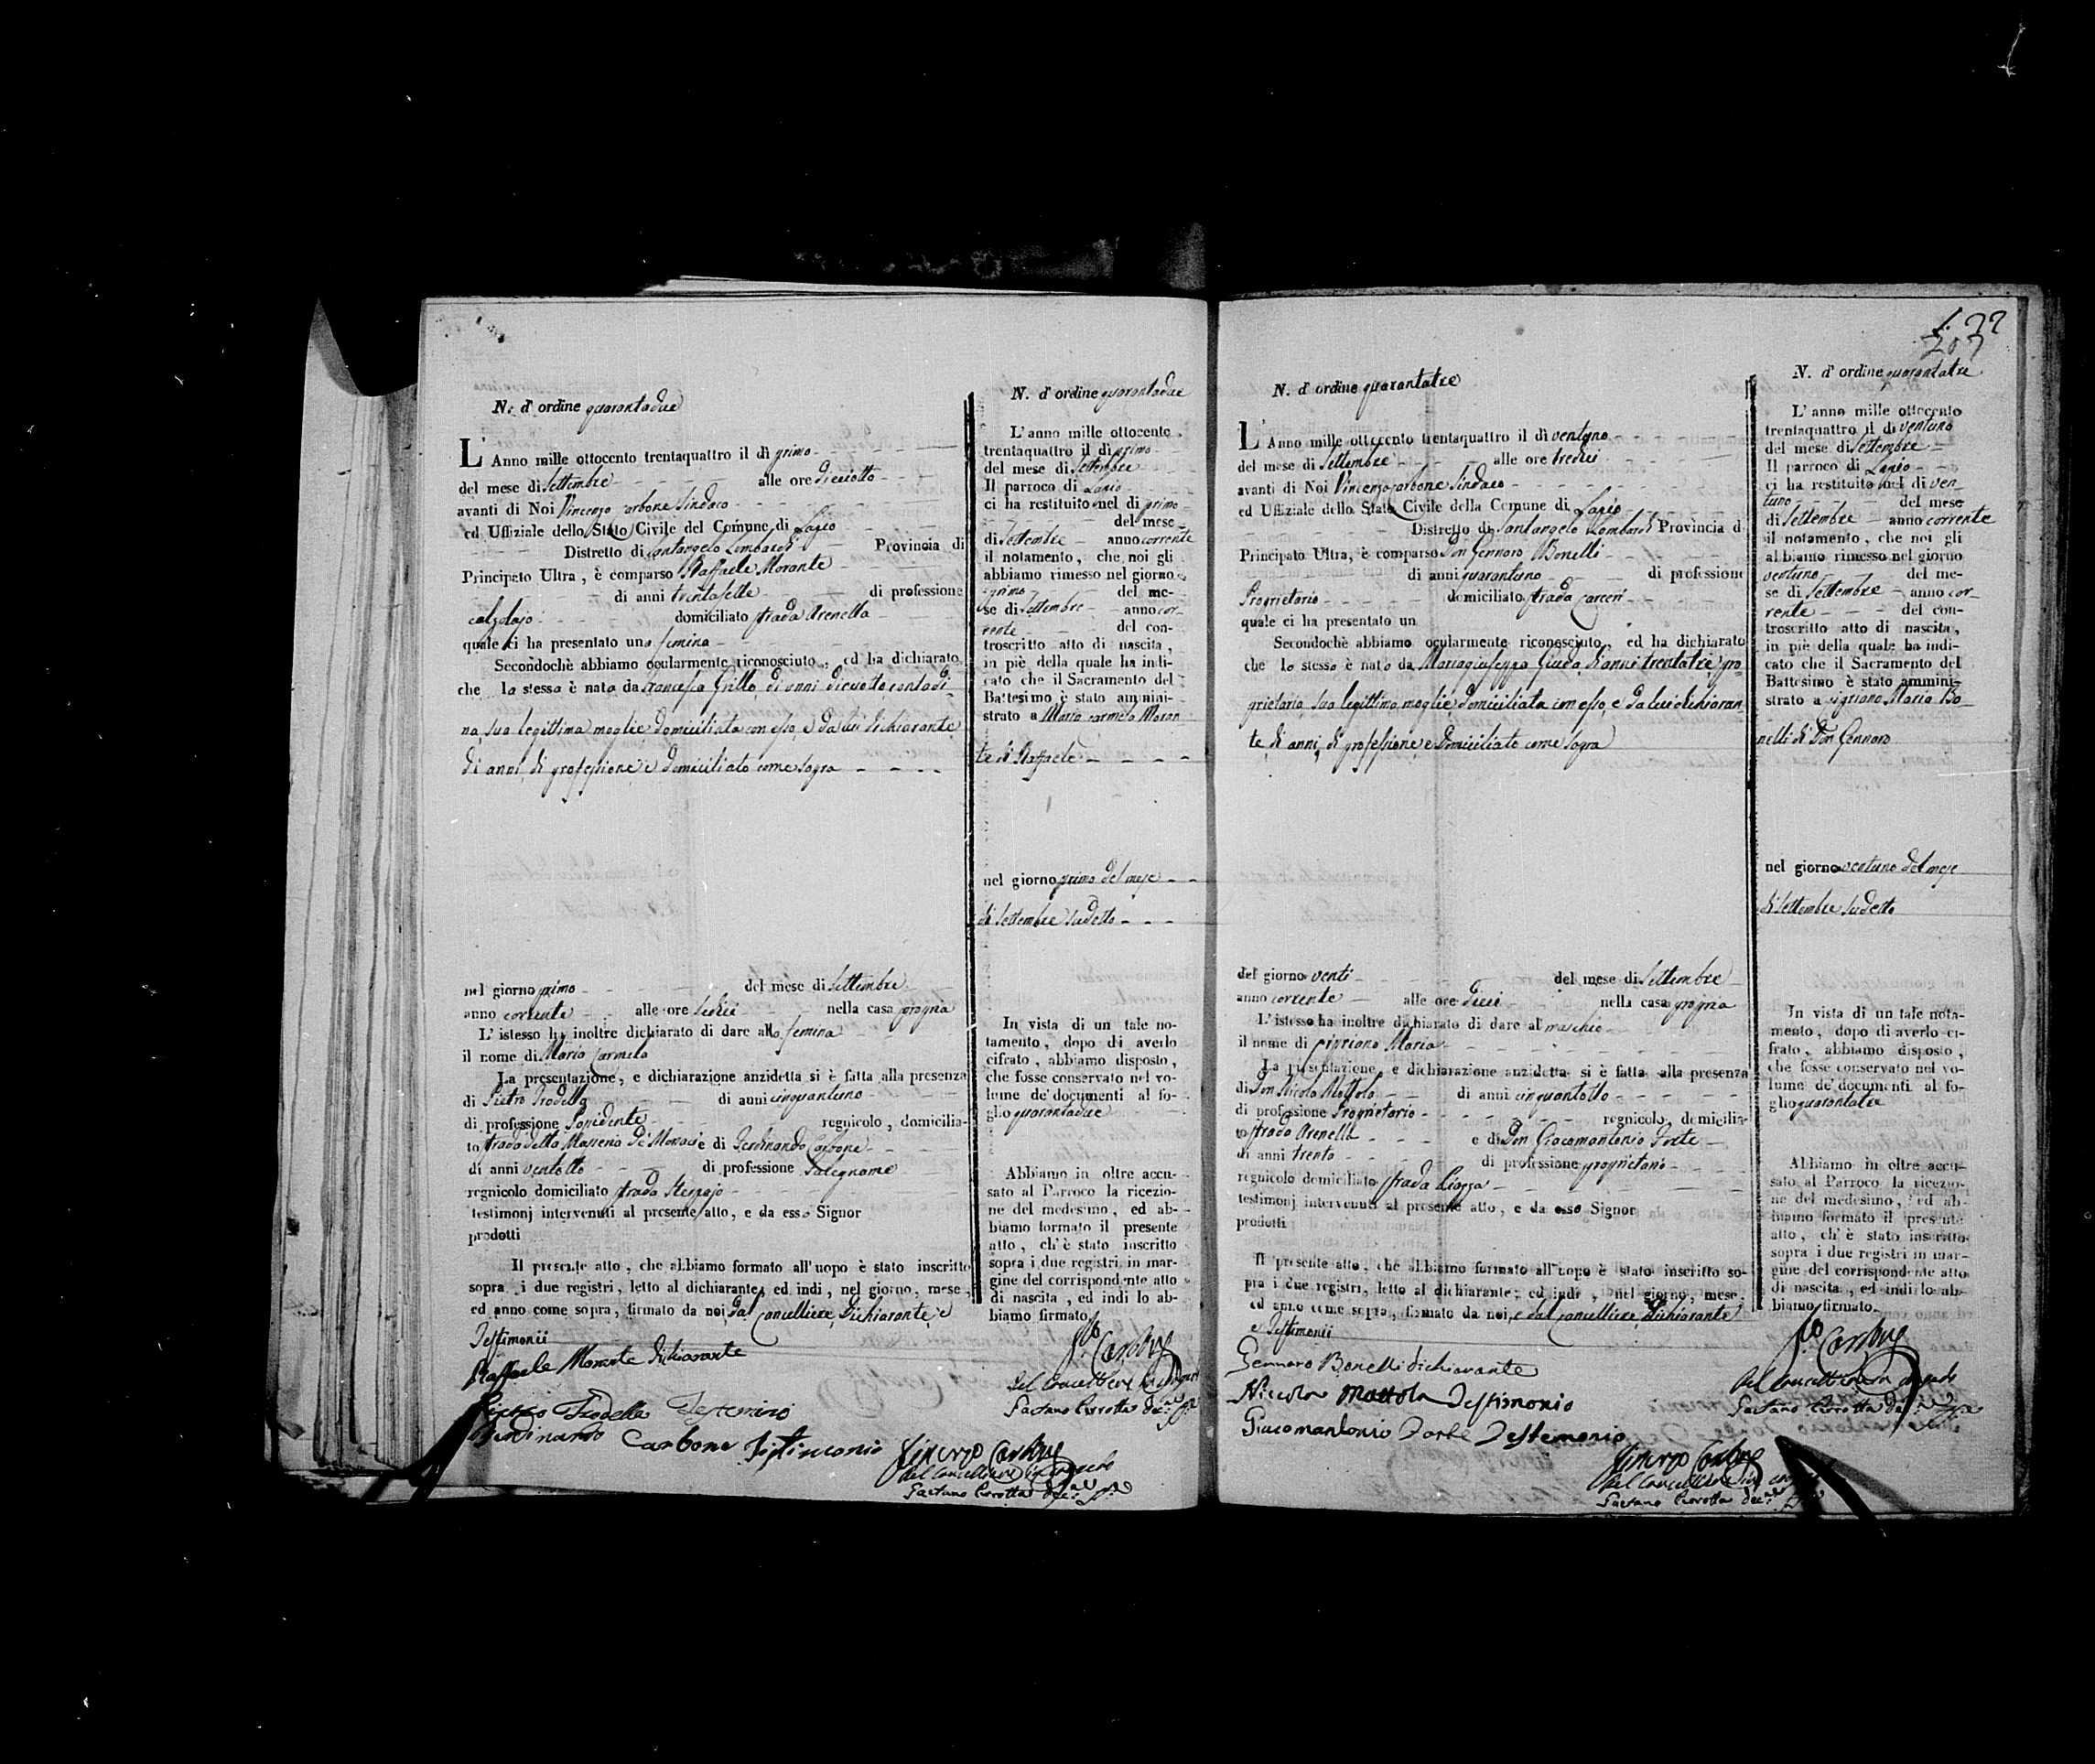 N. d'ordine quarantadue
L'Anno mille ottocento trentaquattro il dì primo
del mese di Settembre alle ore dieciotto
avanti di Noi Vincenzo Carbone Sindaco
ed Uffiziale dello Stato Civile del Comune di Lapio
Distretto di Santangelo Lombardi Provincia di
Principato Ultra, è comparso Raffaele Morante
di anni trentasette di professione
calzolajo domiciliato strada Arenella
quale ci ha presentato una femina
Secondochè abbiamo ocularmente riconosciuto, ed ha dichiarato
che la stessa è nata da Francesca Grillo di anni dieciotto contadi-
na, sua legittima moglie domiciliata con esso, e da lui dichiarante
di anni, di professione e domiciliato come sopra
nel giorno primo del mese di Settembre
anno corrente alle ore sedici nella casa propria
L'istesso ha inoltre dichiarato di dare alla femina
il nome di Maria Carmela
La presentazione, e dichiarazione anzidetta si è fatta alla presenza
di Pietro Trodella di anni cinquantuno
di professione Possidente regnicolo, domicilia-
to strada della Masseria de Monaci e di Ferdinando Carbone
di anni ventotto di professione Falegname
regnicolo domiciliato strada
testimonj intervenuti al presente atto, e da esso Signor
prodotti
Il presente atto, che abbiamo formato all'uopo è stato inscritto
sopra i due registri, letto al dichiarante, ed indi, nel giorno, mese,
ed anno come sopra, firmato da noi, dal Cancelliere, Dichiarante, e
Testimonii
Raffaele Morante dichiarante
Pietro Trodella Testemino
Ferdinando Carbone Testimonio
Vincenzo Carbone
Pel Cancelliere
Gaetano Pirrotta
N. d'ordine quarantadue
L'anno mille ottocento
trentaquattro il dì primo
del mese di Settembre
Il parroco di Lapio
ci ha restituito nel dì primo
del mese
di Settembre anno corrente
il notamento, che noi gli
abbiamo rimesso nel giorno
primo del me-
se di Settembre anno cor-
rente del con-
troscritto atto di nascita,
in piè della quale ha indi-
cato che il Sacramento del
Battesimo è stato ammini-
strato a Maria Carmela Moran
te di Raffaele
nel giorno primo del mese
di Settembre sudetto
In vista di un tale no-
tamento, dopo di averlo
cifrato, abbiamo disposto,
che fosse conservato nel vo-
lume de' documenti al fo-
glio quarantadue
Abbiamo in oltre accu-
sato al Parroco la ricezio-
ne del medesimo, ed ab-
biamo formato il presente
atto, ch'è stato inscritto
sopra i due registri in mar-
gine del corrispondente atto
di nascita, ed indi lo ab-
biamo firmato
Carbone
Pel Cancelliere
Gaetano Pirrotta
N. d'ordine quarantatre
L'Anno mille ottocento trentaquattro il dì ventuno
del mese di Settembre alle ore tredici
avanti di Noi Vincenzo Carbone Sindaco
ed Uffiziale dello Stato Civile della Comune di Lapio
Distretto di Santangelo Lombardi Provincia di
Principato Ultra, è comparso Don Gennaro Bonelli
di anni quarantuno di professione
Proprietario domiciliato strada Carceri
quale ci ha presentato un
Secondochè abbiamo ocularmente riconosciuto, ed ha dichiarato
che lo stesso è nato da Mariagiuseppa Giuda di anni trentatre pro-
prietaria, sua legittima moglie, domiciliata con esso, e da lui dichiaran-
te di anni, di professione, e domiciliato come sopra
del giorno venti del mese di Settembre
anno corrente alle ore dieci nella casa propria
L'istesso ha inoltre dichiarato di dare al maschio
il nome di Cipriano Maria
La presentazione, e dichiarazione anzidetta si è fatta alla presenza
di Don Nicola Mottola di anni cinquantotto
di professione Proprietario regnicolo, domicilia-
to strada Arenella e di Don Giacomantonio Forte
di anni trenta di professione proprietario
regnicolo domiciliato strada Piazza
testimonj intervenuti al presente atto, e da esso Signor
prodotti
Il presente atto, che abbiamo formato all'uopo è stato inscritto so-
pra i due registri, letto al dichiarante, ed indi, nel giorno, mese,
ed anno come sopra, firmato da noi, e dal Cancelliere, Dichiarante
e Testimonii
Gennaro Bonelli dichiarante
Niccola Mottola Testimonio
Giacomantonio Forte Testemonio
Vincenzo Carbone
Pel Cancelliere
Gaetano Pirrotta
N. d'ordine quarantatre
L'anno mille ottocento
trentaquattro il dì ventuno
del mese di Settembre
Il parroco di Lapio
ci ha restituito nel dì ven-
tuno del mese
di Settembre anno corrente
il notamento, che noi gli
abbiamo rimesso nel giorno
ventuno del me-
se di Settembre anno cor-
rente del con-
troscritto atto di nascita,
in piè della quale ha indi-
cato che il Sacramento del
Battesimo è stato ammini-
strato a Cipriano Maria Bo-
nelli di Don Gennaro
nel giorno ventuno del mese
di Settembre sudetto
In vista di un tale nota-
mento, dopo di averlo ci-
frato, abbiamo disposto,
che fosse conservato nel vo-
lume de' documenti al fo-
glio quarantatre
Abbiamo in oltre accu-
sato al Parroco la ricezio-
ne del medesimo, ed ab-
biamo formato il presente
atto, ch'è stato inscritto
sopra i due registri in mar-
gine del corrispondente atto
di nascita, ed indi lo ab-
biamo firmato
Carbone
Pel Cancelliere
Gaetano Pirrotta